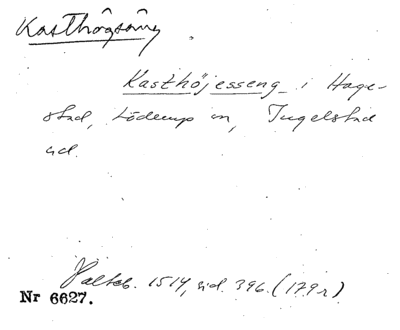 Kasthögsäng
Kasthöjesseng i Hage-
stad, Löderup sn, Ingelstad
hd.
Salteb. 1514, sid. 396. (179r)
Nr 6627.